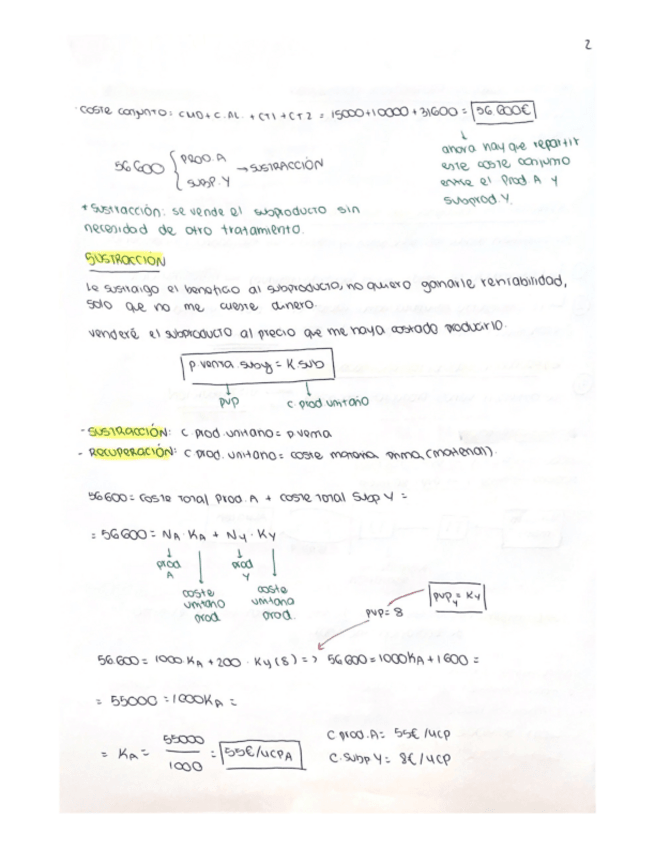 2
·COSTE CONJUNTO: CMD + C.AL. + CT1 + CT2 = 15000+10000+31600 = 56 600€
↓
ahora hay que repartir
este coste conjunto
entre el Prod. A y
Subprod. Y.
56600 { PROD. A
SUBP. Y → SUSTRACCIÓN
* Sustracción: se vende el subproducto sin
necesidad de otro tratamiento.
SUSTRACCIÓN
Le sustraigo el beneficio al subproducto, no quiero ganarle rentabilidad,
solo que no me cueste dinero.
venderé el subproducto al precio que me haya costado producirlo.
p.venta suby = K.sub
PVP
C. prod unitario
- SUSTRACCIÓN: C. prod. unitario = p venta
- RECUPERACIÓN: C prod. unitario = coste materia prima (material).
56600 = Coste Total Prod. A + Coste Total Subp Y =
= 56600 = NA · KA + NY · KY
prod A
coste unitario prod
prod Y
coste unitario prod.
PVP = 8
PVPY = KY
56.600 = 1000 KA + 200 · KY (8) => 56600 = 1000KA + 1600 =
= 55000 = 1000KA =
= KA = 55000 / 1000 = 55€/UCPA
C prod. A = 55€/UCP
C. Subp Y = 8€/UCP